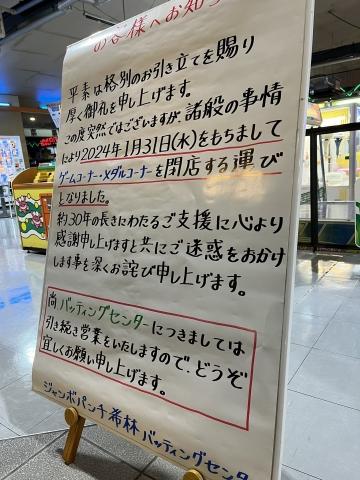 のお客様へお知ら
平素は格別のお引き立てを賜り
厚く御礼を申し上げます。
この度突然ではございますが、諸般の事情
により2024年1月31日(水)をもちまして
ゲームコーナー・メダルコーナーを閉店する運び
となりました。
約30年の長きにわたるご支援に心より
感謝申し上げますと共にご迷惑をおかけ
します事を深くお詫び申し上げます。
尚バッティングセンターにつきましては
引き続き営業をいたしますので、どうぞ
宜しくお願い申し上げます。
ジャンボパンチ希林バッティングセンタ